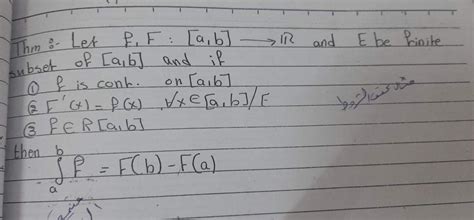 Thm :- Let f, F : [a,b] → ℝ and E be finite
subset of [a,b] and if
① f is cont. on [a,b]
② F'(x) = f(x), ∀x ∈ [a,b]/E
③ f ∈ R[a,b]
then
∫ₐᵇ f = F(b) - F(a)